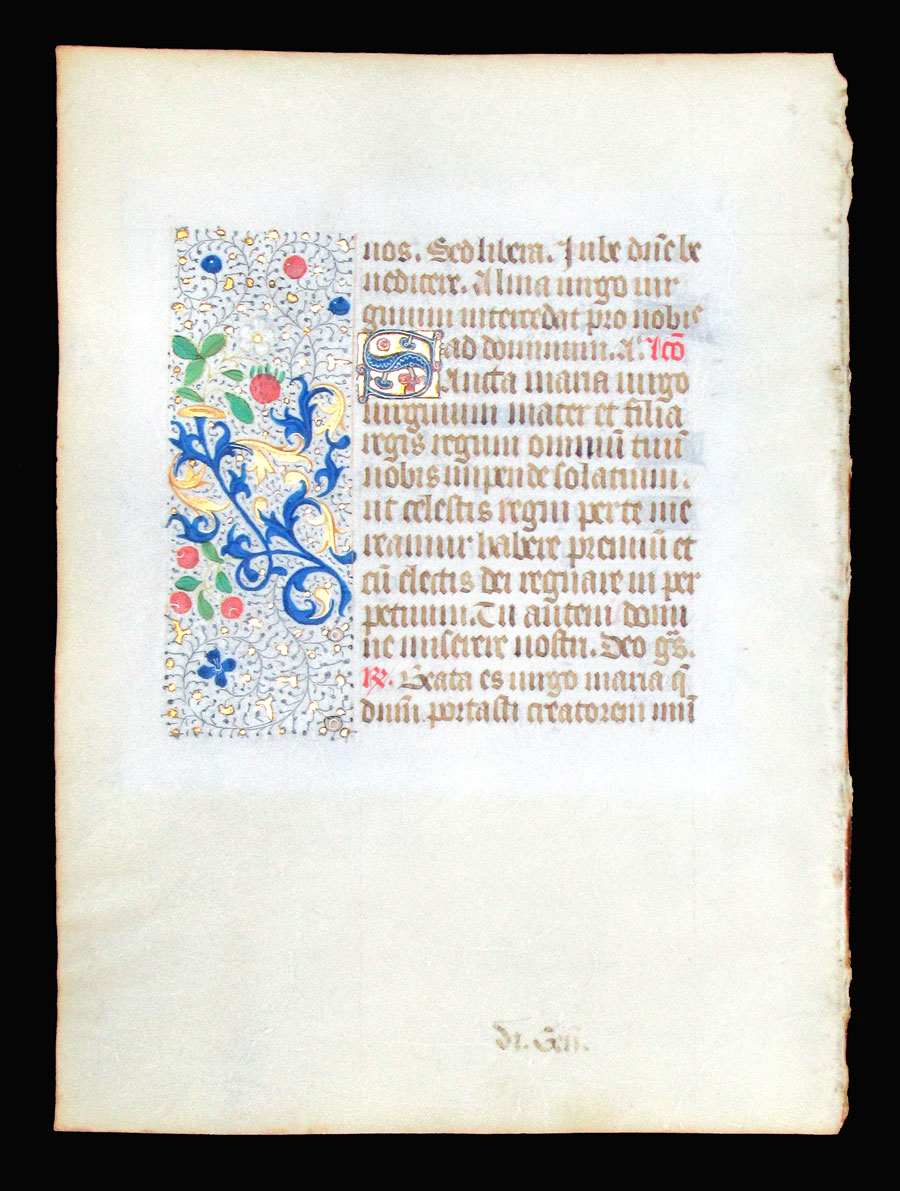 nos. Sed libera. Iube dñe be
nedicere. Alma uirgo uir
ginum intercedat pro nobis
ad dominum. A. lcõ
Sancta maria uirgo
uirginum mater et filia
regis regum omniũ tuũ
nobis inpende solatium.
ut celestis regni per te me
reamur habere premiũ et
cũ electis dei regnare in per
petuum. Tu autem domi
ne miserere nostri. Deo gr̃s.
℟. Beata es uirgo maria q̃
dnm̃ portasti creatorem mũ